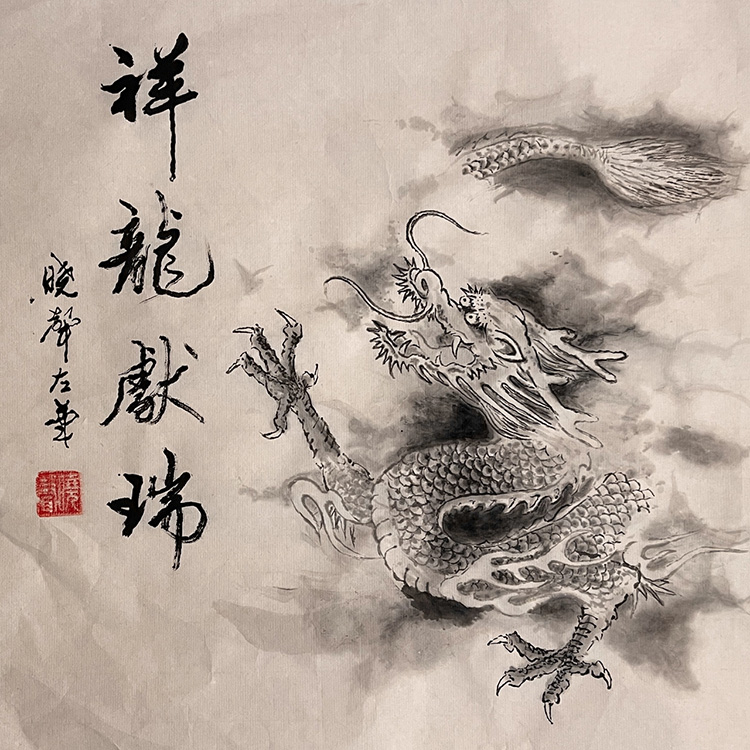 祥龍獻瑞
晓聲左筆